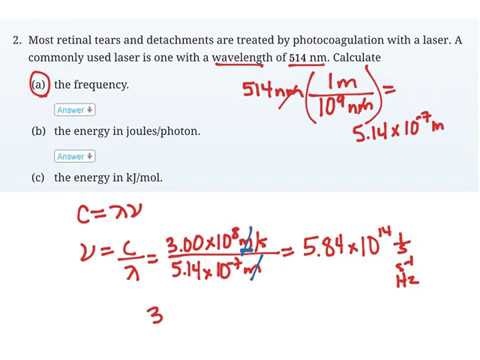 2. Most retinal tears and detachments are treated by photocoagulation with a laser. A
commonly used laser is one with a wavelength of 514 nm. Calculate
(a) the frequency.
514 nm (1 m / 10⁹ nm) =
5.14 x 10⁻⁷ m
Answer
(b) the energy in joules/photon.
Answer
(c) the energy in kJ/mol.
C = λν
ν = C/λ = 3.00 x 10⁸ m/s / 5.14 x 10⁻⁷ m = 5.84 x 10¹⁴ 1/s
s⁻¹
Hz
3